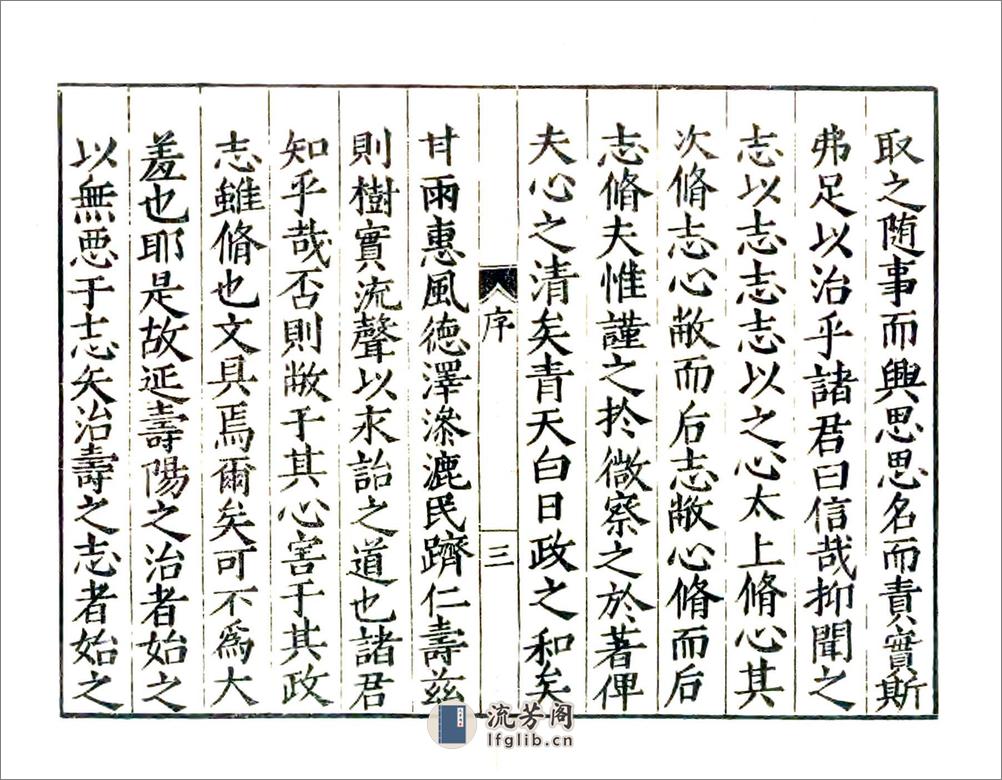 取之随事而興思思名而責實斯
弗足以治乎諸君曰信哉抑聞之
志以志志志以之心太上脩心其
次脩志心敝而后志敝心脩而后
志脩夫惟謹之扵微察之於著俾
夫心之清矣青天白日政之和矣
序
三
甘雨惠風德澤滲漉民躋仁壽兹
則樹實流聲以永詒之道也諸君
知乎哉否則敝于其心害于其政
志雖脩也文具焉爾矣可不爲大
羞也耶是故延壽陽之治者始之
以無惡于志矣治壽之志者始之
流芳阁
lfglib.cn